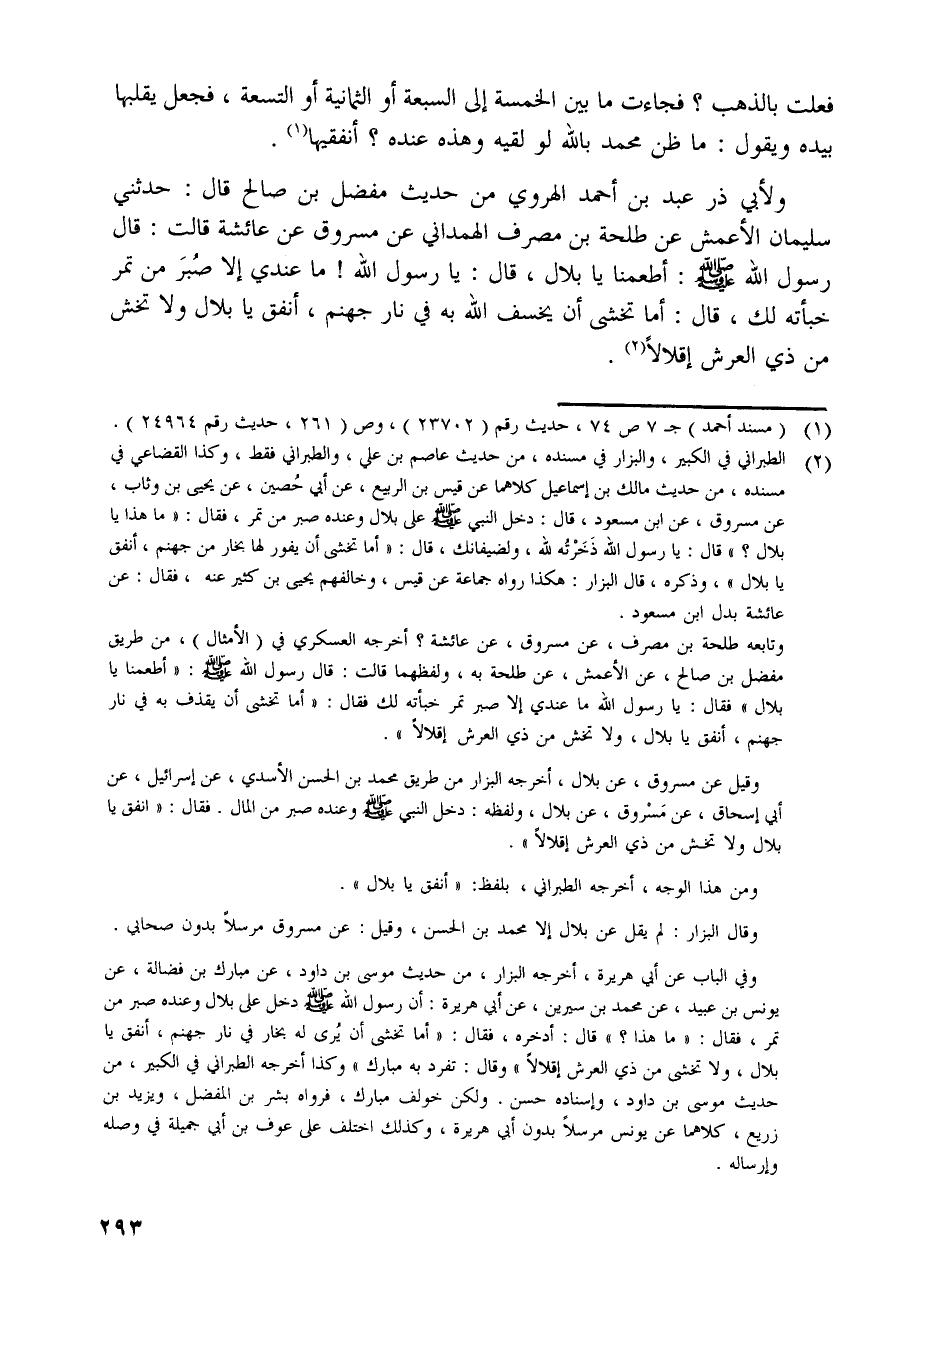 فعلت بالذهب ؟ فجاءت ما بين الخمسة إلى السبعة أو الثمانية أو التسعة ، فجعل يقلبها
بيده ويقول : ما ظن محمد بالله لو لقيه وهذه عنده ؟ أنفقيها(١) .
ولأبي ذر عبد بن أحمد الهروي من حديث مفضل بن صالح قال : حدثني
سليمان الأعمش عن طلحة بن مصرف الهمداني عن مسروق عن عائشة قالت : قال
رسول الله ﷺ : أطعمنا يا بلال ، قال : يا رسول الله ! ما عندي إلا صُبَرَ من تمر
خبأته لك ، قال : أما تخشى أن يخسف الله به في نار جهنم ، أنفق يا بلال ولا تخش
من ذي العرش إقلالاً(٢) .
(١) ( مسند أحمد ) جـ ٧ ص ٧٤ ، حديث رقم ( ٢٣٧٠٢ ) ، وص ( ٢٦١ ، حديث رقم ٢٤٩٦٤ ) .
(٢) الطبراني في الكبير ، والبزار في مسنده ، من حديث عاصم بن علي ، والطبراني فقط ، وكذا القضاعي في
مسنده ، من حديث مالك بن إسماعيل كلاهما عن قيس بن الربيع ، عن أبي حُصين ، عن يحيى بن وثاب ،
عن مسروق ، عن ابن مسعود ، قال : دخل النبي ﷺ على بلال وعنده صبر من تمر ، فقال : « ما هذا يا
بلال ؟ » قال : يا رسول الله ذَخَرْتُه لله ، ولضيفانك ، قال : « أما تخشى أن يفور لها بخار من جهنم ، أنفق
يا بلال » ، وذكره ، قال البزار : هكذا رواه جماعة عن قيس ، وخالفهم يحيى بن كثير عنه ، فقال : عن
عائشة بدل ابن مسعود .
وتابعه طلحة بن مصرف ، عن مسروق ، عن عائشة ؟ أخرجه العسكري في ( الأمثال ) ، من طريق
مفضل بن صالح ، عن الأعمش ، عن طلحة به ، ولفظهما قالت : قال رسول الله ﷺ : « أطعمنا يا
بلال » فقال : يا رسول الله ما عندي إلا صبر تمر خبأته لك فقال : « أما تخشى أن يقذف به في نار
جهنم ، أنفق يا بلال ، ولا تخش من ذي العرش إقلالاً » .
وقيل عن مسروق ، عن بلال ، أخرجه البزار من طريق محمد بن الحسن الأسدي ، عن إسرائيل ، عن
أبي إسحاق ، عن مَسْروق ، عن بلال ، ولفظه : دخل النبي ﷺ وعنده صبر من المال . فقال : « انفق يا
بلال ولا تخش من ذي العرش إقلالاً » .
ومن هذا الوجه ، أخرجه الطبراني ، بلفظ: « أنفق يا بلال » .
وقال البزار : لم يقل عن بلال إلا محمد بن الحسن ، وقيل : عن مسروق مرسلاً بدون صحابي .
وفي الباب عن أبي هريرة ، أخرجه البزار ، من حديث موسى بن داود ، عن مبارك بن فضالة ، عن
يونس بن عبيد ، عن محمد بن سيرين ، عن أبي هريرة : أن رسول الله ﷺ دخل على بلال وعنده صبر من
تمر ، فقال : « ما هذا ؟ » قال : أدخره ، فقال : « أما تخشى أن يُرى له بخار في نار جهنم ، أنفق يا
بلال ، ولا تخشى من ذي العرش إقلالاً » وقال : تفرد به مبارك » وكذا أخرجه الطبراني في الكبير ، من
حديث موسى بن داود ، وإسناده حسن . ولكن خولف مبارك ، فرواه بشر بن المفضل ، ويزيد بن
زريع ، كلاهما عن يونس مرسلاً بدون أبي هريرة ، وكذلك اختلف على عوف بن أبي جميلة في وصله
وإرساله .
٢٩٣